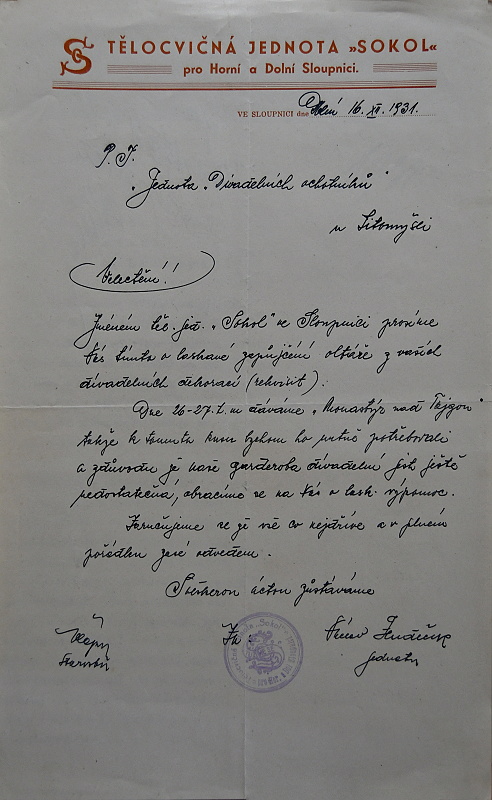 TĚLOCVIČNÁ JEDNOTA »SOKOL«
pro Horní a Dolní Sloupnici.
VE SLOUPNICI dne Dolní 16 XII. 1931.
P. T.
"Jednota "Divadelních ochotníků"
v Litomyšli
Velectění!!
Jménem těl. jed. "Sokol" ve Sloupnici prosíme
Vás tímto o laskavé zapůjčení oltáře z vašich
divadelních dekorací (rekvisit).
Dne 26-27. t. m. dáváme "Monastýr nad Tajgou"
takže k tomuto kusu bychom ho nutně potřebovali
a z důvodu že naše garderoba divadelní jest ještě
nedostatečná, obracíme se na Vás o lask. výpomoc.
Zaručujeme se že vše co nejdříve a v plném
pořádku zase odvedem.
S veškerou úctou zůstáváme
Starosta
Za
Jednatel